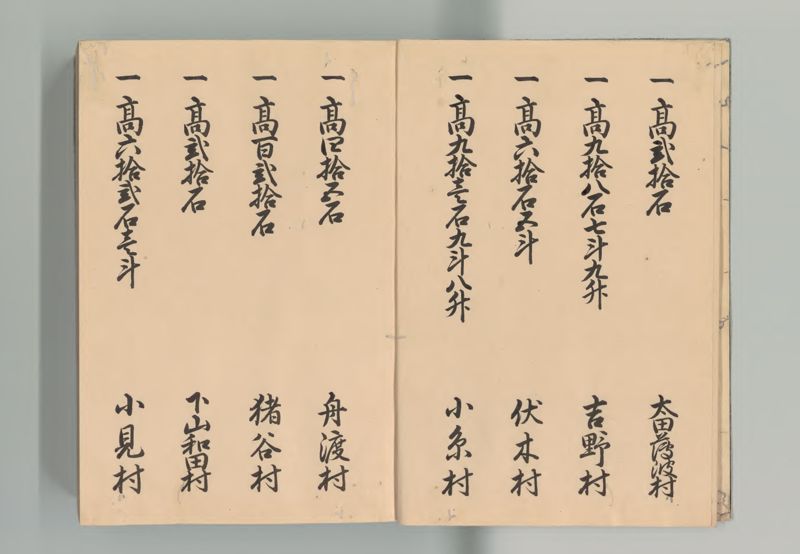 一 高弐拾石 太田薄波村
一 高九拾八石七斗九升 吉野村
一 高六拾石五斗 伏木村
一 高九拾壱石九斗八升 小糸村
一 高四拾五石 舟渡村
一 高百弐拾石 猪谷村
一 高弐拾石 下山和田村
一 高六拾弐石壱斗 小見村